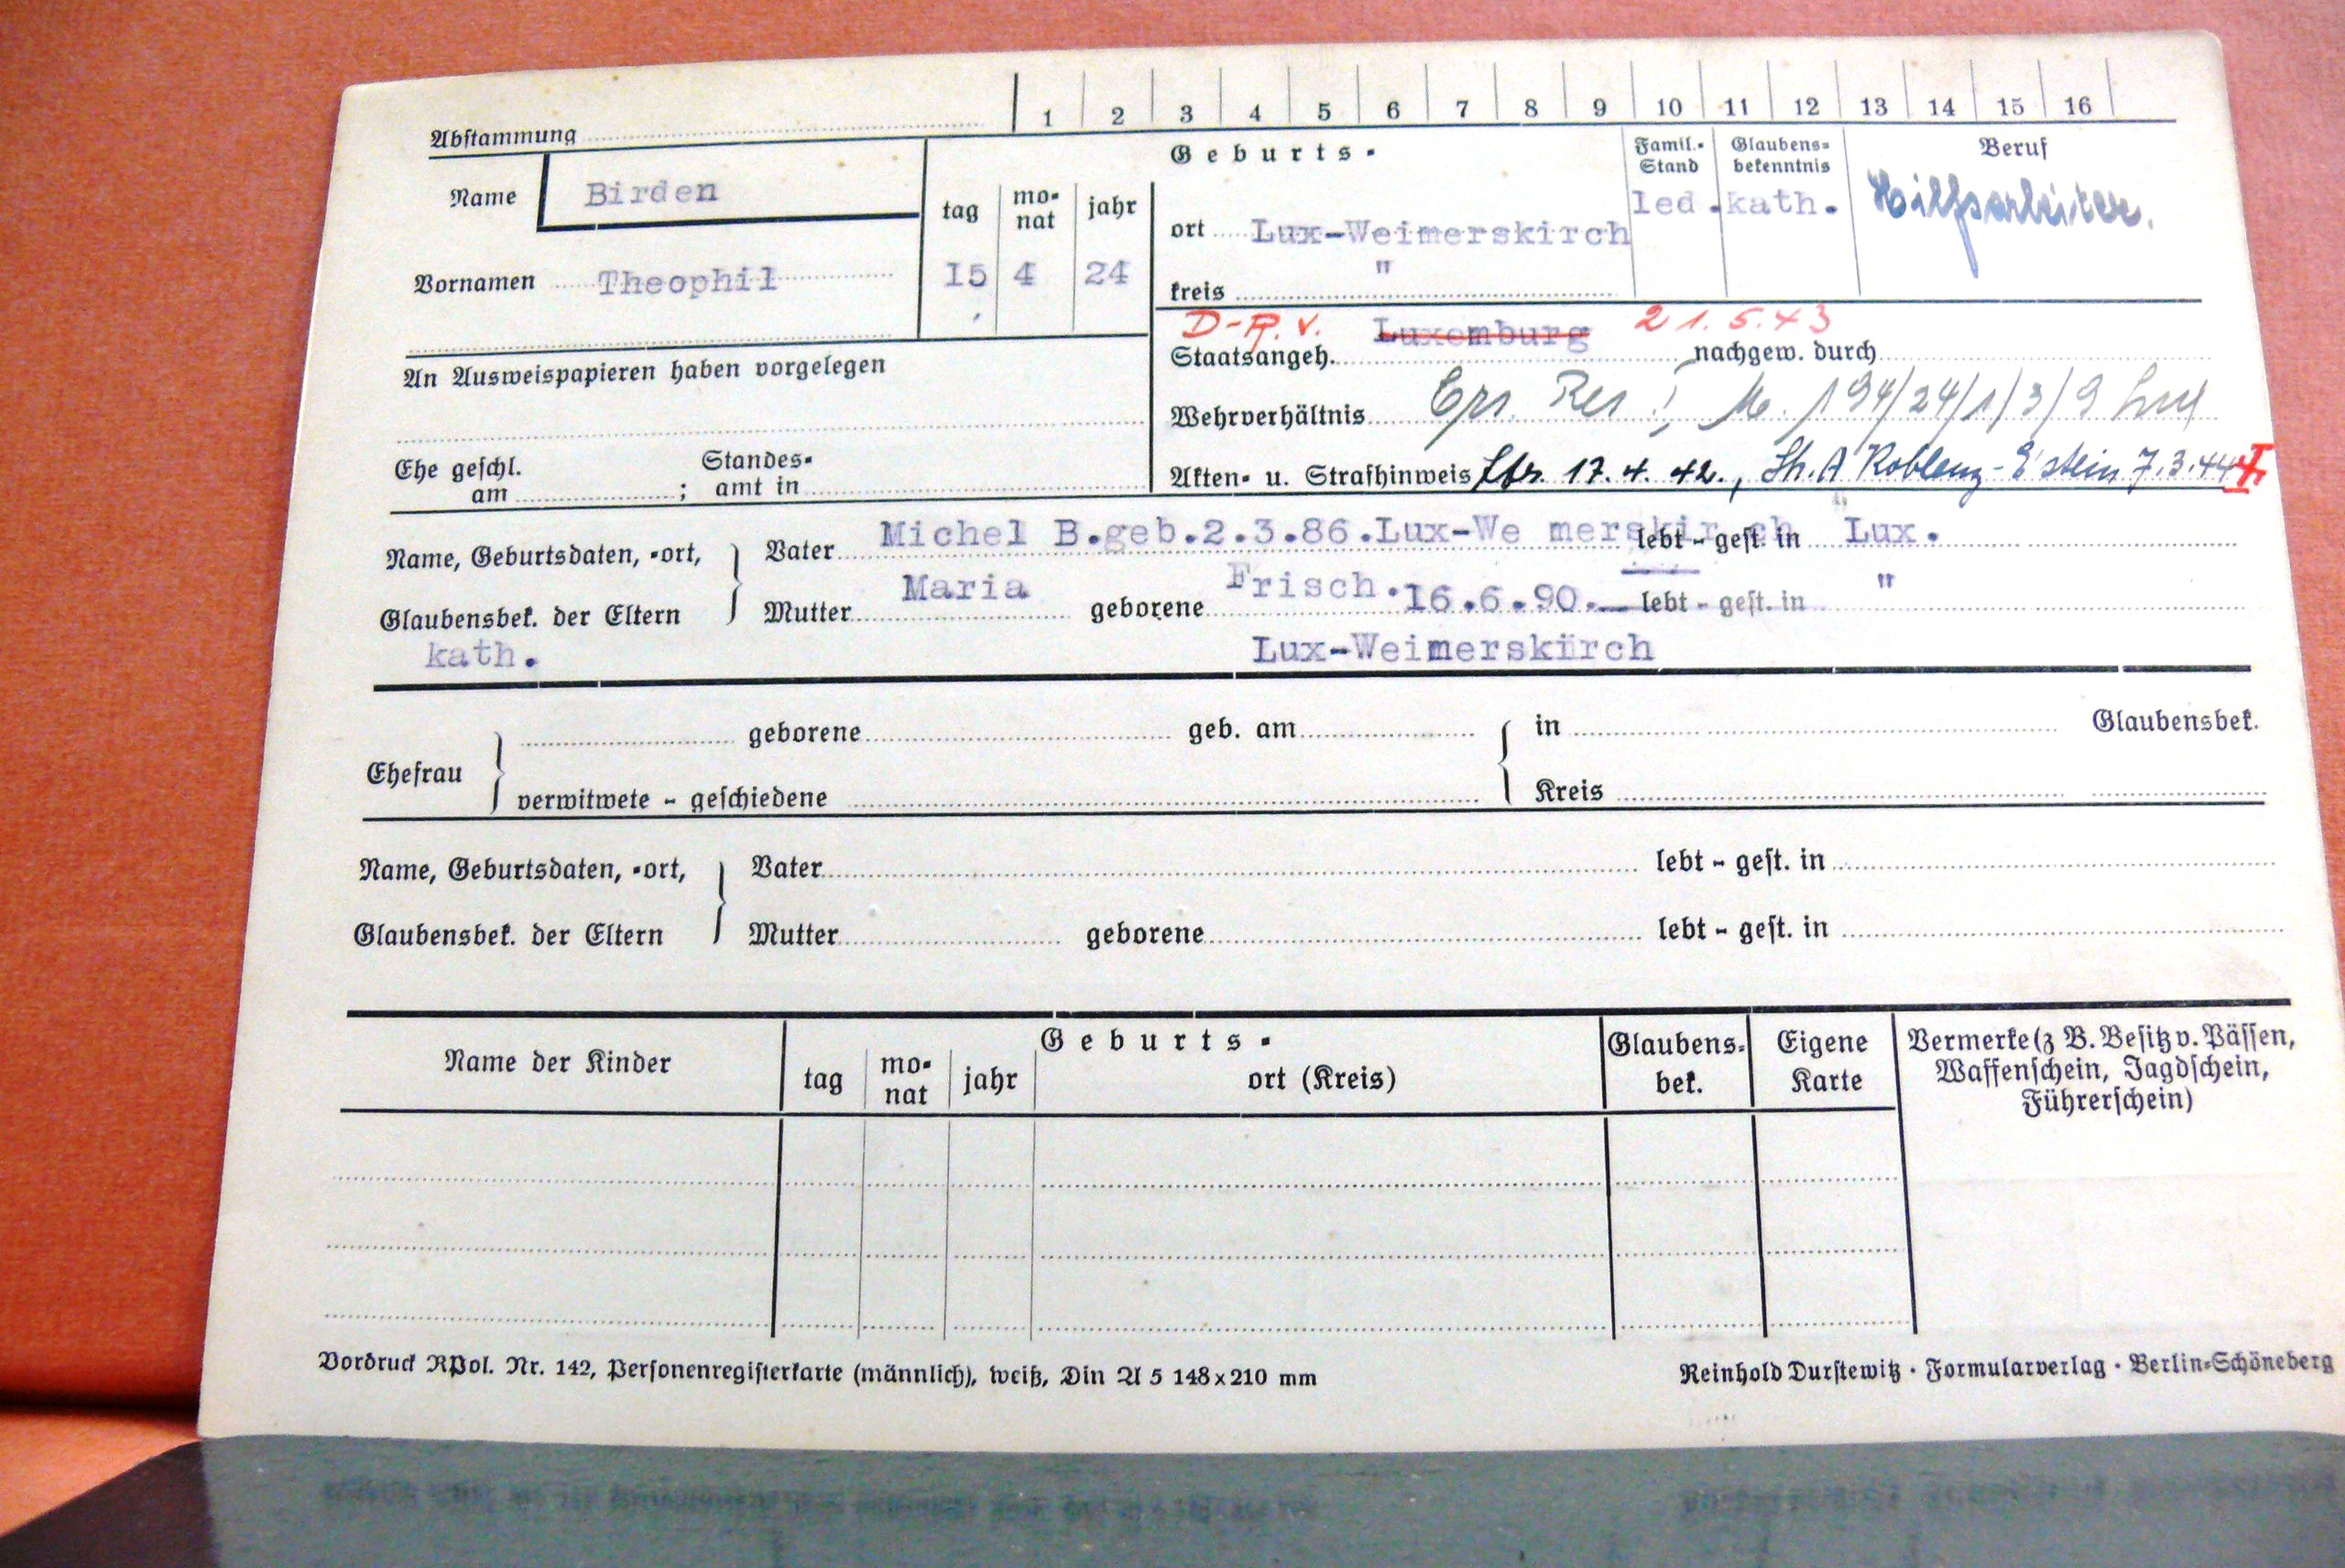 1 2 3 4 5 6 7 8 9 10 11 12 13 14 15 16
Abstammung
Name Birden
Geburts-
tag monat jahr
Famil.-Stand Glaubensbekenntnis Beruf
led. kath. Hilfsarbeiter.
ort Lux-Weimerskirch
Vornamen Theophil 15 4 24
kreis "
D-R. v. Luxemburg 21.5.43
Staatsangeh. nachgew. durch
An Ausweispapieren haben vorgelegen
Wehrverhältnis Ers. Res. I, 194/24/1/3/9 Lux
Ehe geschl. am ; Standesamt in
Akten- u. Strafhinweis 17.4.42., Koblenz-E'stein 7.3.44
Name, Geburtsdaten, -ort, Vater Michel B.geb.2.3.86.Lux-We merskirch lebt - gest. in Lux.
Glaubensbek. der Eltern Mutter Maria geborene Frisch.16.6.90. lebt - gest. in "
kath. Lux-Weimerskirch
Ehefrau geborene geb. am in Glaubensbek.
verwitwete - geschiedene Kreis
Name, Geburtsdaten, -ort, Vater lebt - gest. in
Glaubensbek. der Eltern Mutter geborene lebt - gest. in
Name der Kinder
Geburts-
tag monat jahr ort (Kreis)
Glaubens-bek.
Eigene Karte
Vermerke (z B. Besitz v. Pässen,
Waffenschein, Jagdschein,
Führerschein)
Vordruck RPol. Nr. 142, Personenregisterkarte (männlich), weiß, Din A 5 148x210 mm
Reinhold Durstewitz · Formularverlag · Berlin-Schöneberg